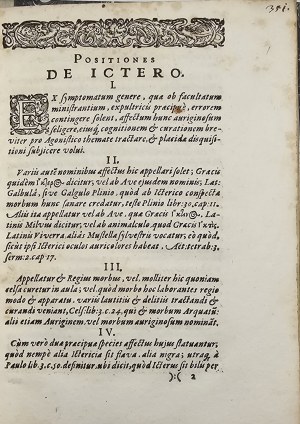 391.
POSITIONES
DE ICTERO.
I.
EX symptomatum genere, quæ ob facultatum
ministrantium, expultricis præcipuè, errorem
contingere solent, affectum hunc auriginosum
seligere, eiusq; cognitionem & curationem bre-
viter pro Agonistico themate tractare, & placida disquisi-
tioni subjicere volui.
II.
Variis autē nominibus affectus hic appellari solet; Græcis
quidem ἴκτερ dicitur, vel ab Ave ejusdem nominis; Lat:
Galbulâ, sive Galgulo Plinio, quòd ab Ictericò conspecta
morbum hunc sanare credatur, teste Plinio lib: 30. cap. 11.
Alii ita appellatur vel ab Ave. qua Græcis dicitur,
Latinis Milvius dicitur, vel ab animalculo. quod Græcis
Latinis Viverra, aliàs Mustella sylvestris vocatur, eò quòd,
sicùt ipsi Icterici oculos auricolores habeat. Aët. tetrab. 3.
serm: 2. cap. 17.
III.
Appellatur & Regius morbus, vel. molliter hic quoniam
celsa curetur in aula; vel. quòd morbo hoc laborantes regio
modo & apparatu. variis lautitiis & delitiis tractandi &
curandi veniant, Cels. lib: 3. c. 24. qui & morbum Arquatū:
alii etiam Auriginem. vel morbum auriginosum nominât.
IV.
Cùm verò duæ præcipuæ species affectus hujus statuantur,
quòd nempè alia Ictericia sit flava. alia nigra; utraq; à
Paulo lib: 3. c. 50. definitur. ubi dicit, quòd Icterus sit bilu per
):( 2